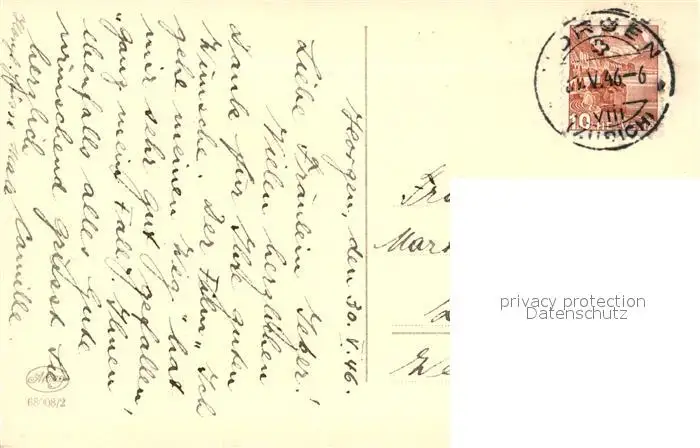 Horgen, den 30. V. 46.
Liebe Fräulein
Vielen herzlichen
Dank für Ihre guten
Wünsche. Der Film "Ich
gehe meinen Weg" hat
mir sehr gut gefallen,
"ganz mein Fall". Ihnen
ebenfalls alles Gute
wünschend grüsst Sie
herzlich
Camille
68008/2
HORGEN
V.46-6
VIII
(ZÜRICH)
10
Mar
privacy protection
Datenschutz